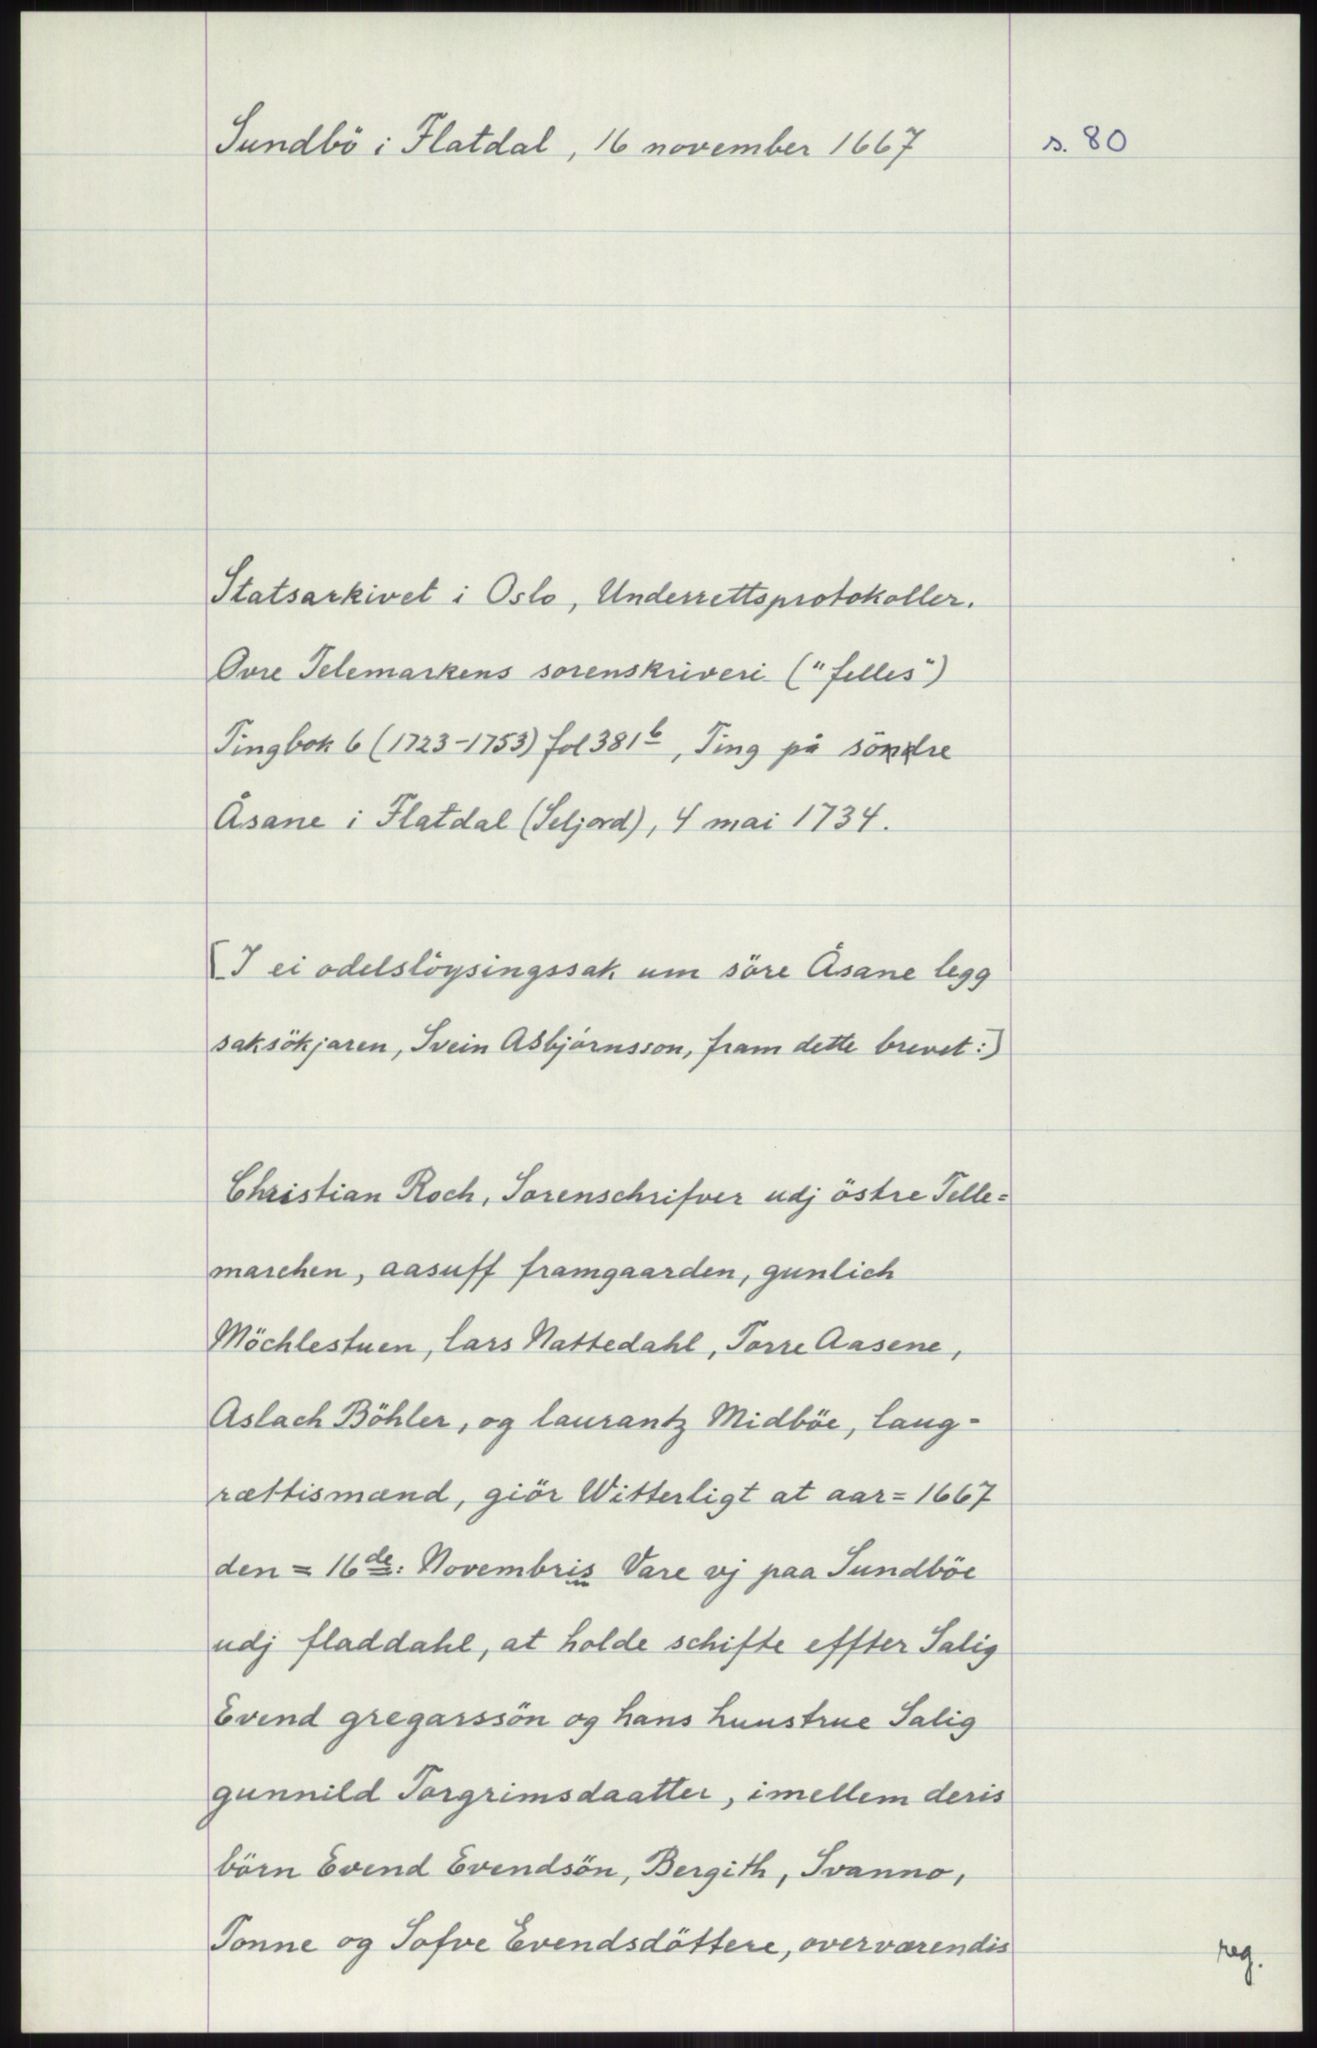 Sundbö i Flatdal, 16 november 1667
s. 80
Statsarkivet i Oslo, Underrettsprotokoller.
Øvre Telemarkens sorenskriveri ("felles")
Tingbok 6 (1723-1753) fol 381b, Ting på söndre
Åsane i Flatdal (Seljord), 4 mai 1734.
[I ei odelslöysingssak um söre Åsane legg
saksökjaren, Svein Asbjörnsson, fram dette brevet:]
Christian Roch, Sorenschrifver udj östre Telle=
marchen, aasuff framgaarden, gunlich
Möchlestuen, lars Nattedahl, Torre Aasene,
Aslach Böhler, og laurantz Midböe, laug-
rættismænd, giör Witterligt at aar = 1667
den = 16de: Novembris Vare vj paa Sundböe
udj fladdahl, at holde schifte effter Salig
Evend gregarssön og hans huustrue Salig
gunnild Torgrimsdaatter, imellem deris
börn Evend Evendsön, Bergith, Svanno,
Tonne og Sofve Evendsdöttere, overværendis
reg.